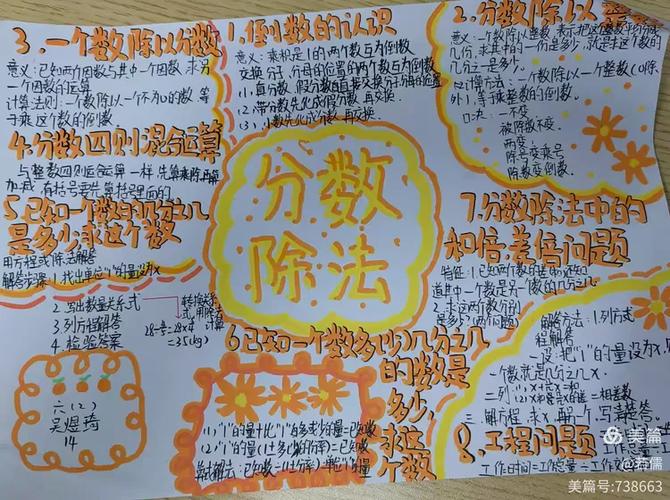 分数
除法
1.倒数的认识
意义:乘积是1的两个数互为倒数
交换分子,分母的位置的两个数互为倒数
(1)真分数、假分数直接交换分子分母的位置
(2)带分数先化成假分数,再交换.
(3)小数先化成分数,再交换.
2.分数除以整
意义:一个数除以整数,表示把这个数平均分成
几份,求其中的一份是多少,就是求这个数的
几分之一是多少.
计算方法:一个数除以一个整数(0除
外),等于乘整数的倒数.
口决:一不变
被除数不变.
两变:
除号变乘号
除数变倒数.
3.一个数除以分数
意义:已知两个因数与其中一个因数,求另
一个因数的运算
计算法则:一个数除以一个不为0的数,等
于乘这个数的倒数.
4.分数四则混合运算
与整数四则运算一样,先算乘除,再算
加减,有括号要先算括号里面的
5.已知一个数的几分之几
是多少,求这个数
用方程或除法解答
解答步骤:1.找出单位"1"的量设为x
2.写出数量关系式
3.列方程解答
4.检验答案
转换关系
式,用除法
计算
=35(kg)
6.已知一个数多(少)几分之几
的数是
多少,
求这
个数
7.分数除法中的
和倍,差倍问题
特征:1.已知两个数的
道其中一个数是另一个数的几分之几
2.求这两个数分别
是多少?(两个问题)
解答方法:1.列方式
程解答
一设:把"1"的量设为x,
一个数就是几分之几x.
三解方程,求x,解一个,写未答.
8.工程问题
工作时间=工作总量÷工作
六(2)
吴煜琦
14
美篇
美篇号:738663